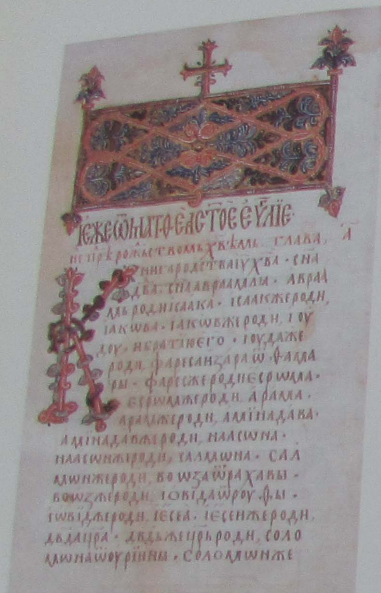 ІЕЖЕѾМАТѲЕАСТОЕЕѴЛІЕ
прѣрожьствомьхвѣмь глава, а
Книгародстваіѵ҃хв҃а · сн҃а
дв҃да · сн҃аавраамлꙗ · авраа
мьродиісаака · ісаакжероди,
іакѡва · іакѡвжероди, іоу
доу, ибратіюего · іоудаже
роди, фаресаизараѿ фама
ры · фаресжеродиесрѡма ·
есрѡмжероди, арама ·
арамжероди, аминадава ·
аминадавжероди, наасѡна ·
наасѡнжероди, салмѡна · сал
мѡнжероди, воѡзаѿрахавы ·
воѡзжероди, іѡвидаѿроуфы ·
іѡвиджероди, іесеа · іесеижероди,
дв҃дацр҃а · дв҃дьжецр҃ьроди, соло
мѡнаѿоуріины · соломѡнже